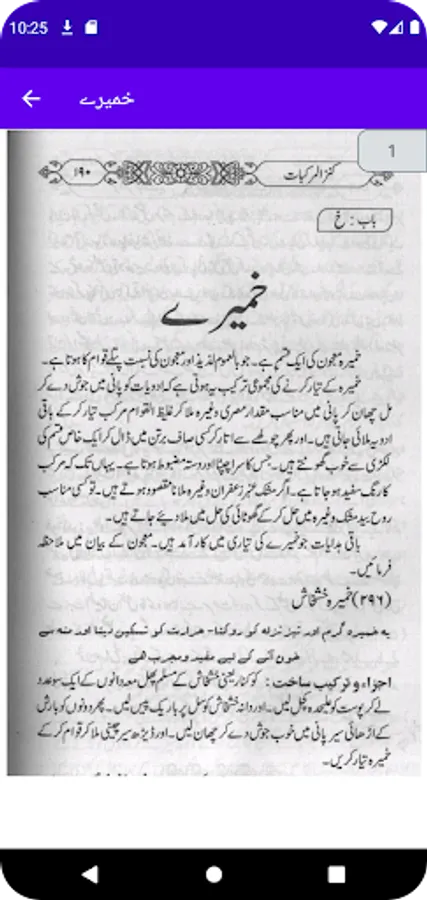 10:25
خمیرے
1
کنز المرکبات
۱۹۰
باب : خ
خمیرے
خمیرہ معجون کی ایک قسم ہے۔ جو بالعموم لذیذ اور معجون کی نسبت پتلے قوام کا ہوتا ہے۔
خمیرہ کے تیار کرنے کی مجموعی ترکیب یہ ہوتی ہے کہ ادویات کو پانی میں جوش دے کر
مل چھان کر پانی میں مناسب مقدار مصری وغیرہ ملا کر غلیظ القوام مرکب تیار کر کے باقی
ادویہ ملائی جاتی ہیں۔ اور پھر چولہے سے اتار کر کسی صاف برتن میں ڈال کر ایک خاص قسم کی
لکڑی سے خوب گھونٹتے ہیں۔ جس کا سرا چپٹا اور دستہ مضبوط ہوتا ہے۔ یہاں تک کہ مرکب
کا رنگ سفید ہو جاتا ہے۔ اگر مشک عنبر زعفران وغیرہ ملانا مقصود ہوتے ہیں۔ تو کسی مناسب
روح بید مشک وغیرہ میں حل کر کے گھوٹائی کی حل میں ملا دیئے جاتے ہیں۔
باقی ہدایات جو خمیرے کی تیاری میں کار آمد ہیں۔ معجون کے بیان میں ملاحظہ
فرمائیں۔
(۲۹۶) خمیرہ خشخاش
یہ خمیرہ گرم اور تیز نزلہ کو روکتا۔ حرارت کو تسکین دیتا اور منہ سے
خون آنے کے لیے مفید و مجرب ھے
اجزاء و ترکیب ساخت : کوکنار یعنی خشخاش کے مسلم پھل معہ دانوں کے ایک سو عدد
لے کر پوست کو علیحدہ کچل لیں۔ اور دانہ خشخاش کو سل پر باریک پیس لیں۔ پھر دونوں کو بارش
کے اڑھائی سیر پانی میں خوب جوش دے کر چھان لیں۔ اور ڈیڑھ سیر چینی ملا کر قوام کر کے
خمیرہ تیار کریں۔